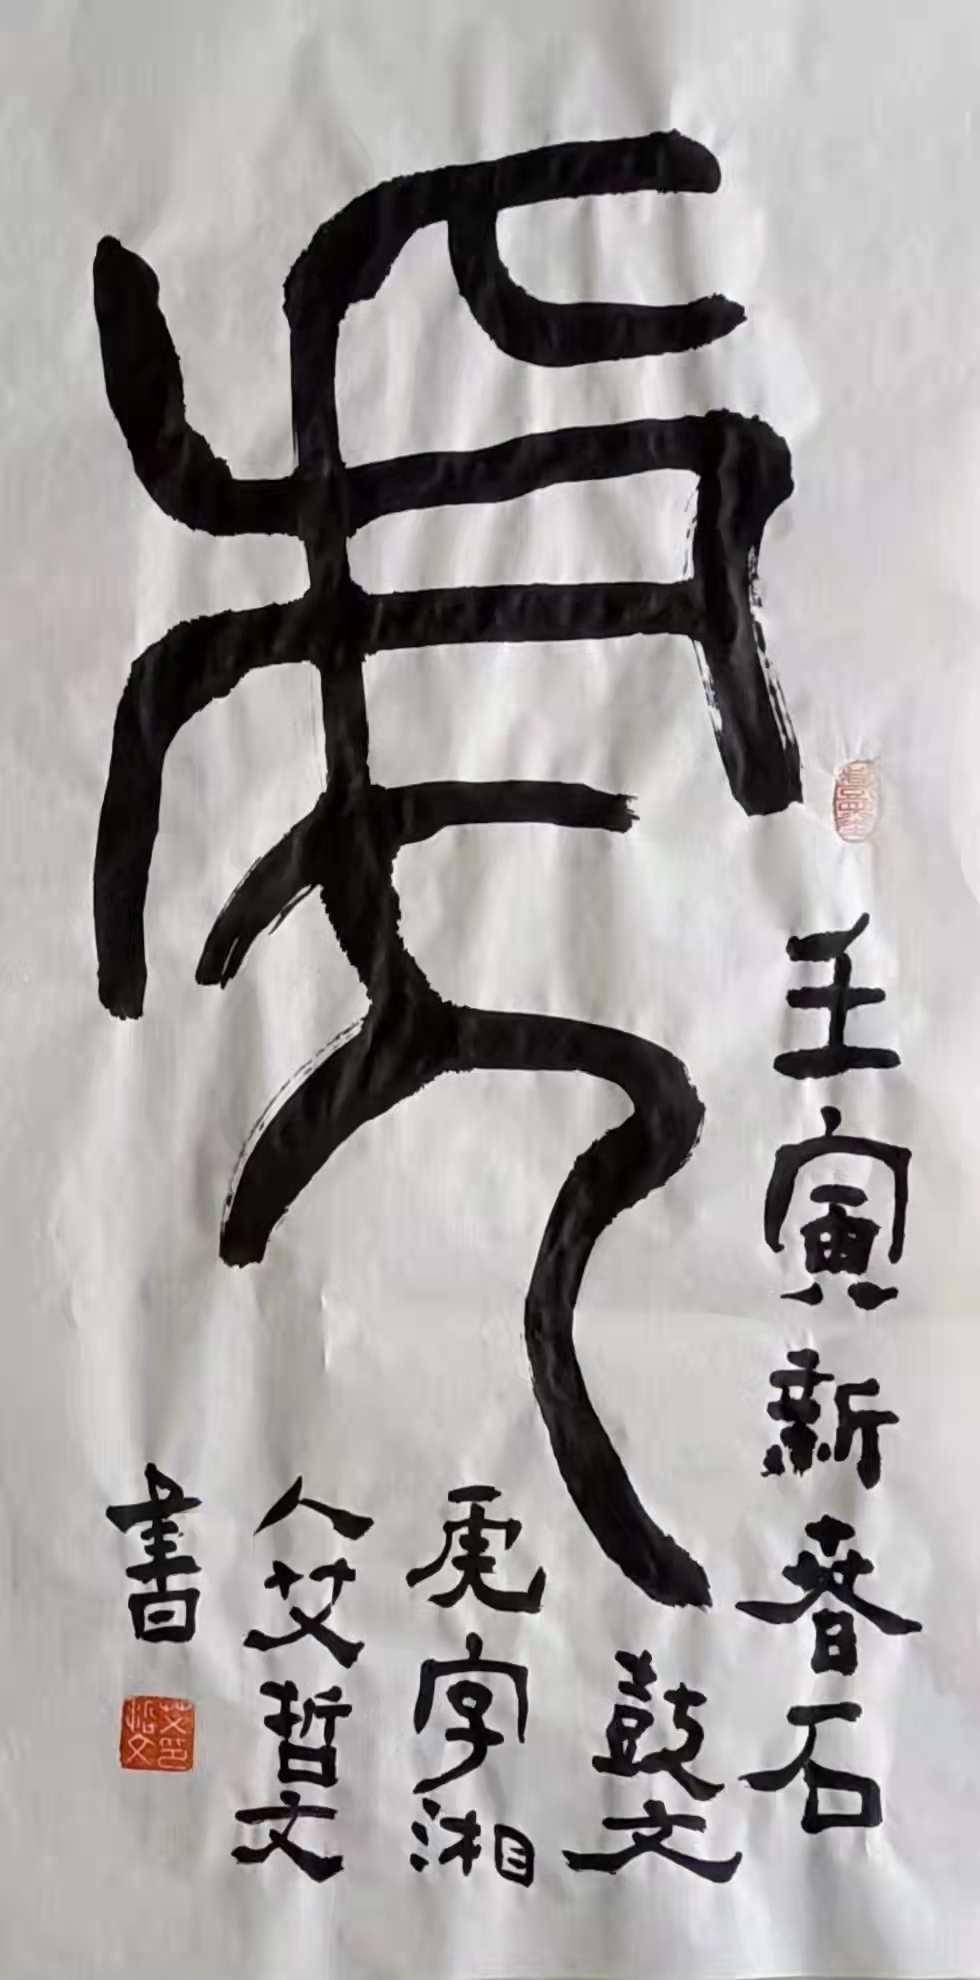 虎
壬寅新春石
鼓文
虎字湘
人艾哲文
書
艾哲文印